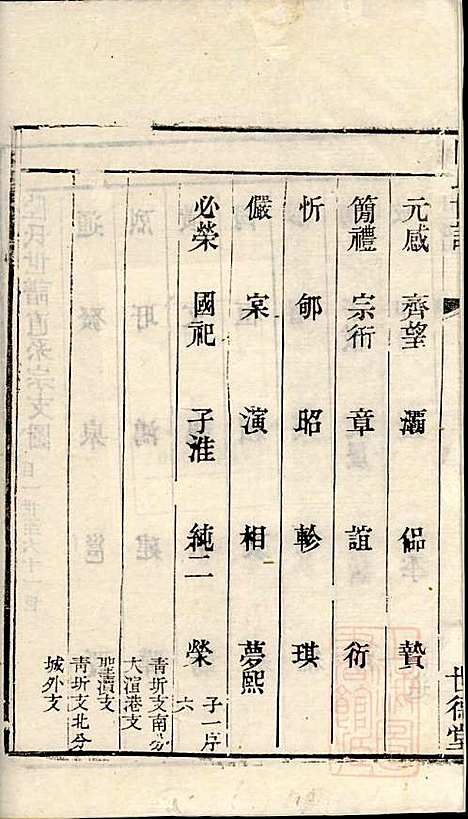 世譜
世德堂
元感 齊望 灞 佋 贄
簡禮 宗術 章 誼 衍
忻 郇 昭 軫 琪
儼 宲 演 相 夢熙
必榮 國祀 子淮 純二 榮
子一序
六
青圻支南分
大渲港支
聖瀆支
青圻支北分
城外支